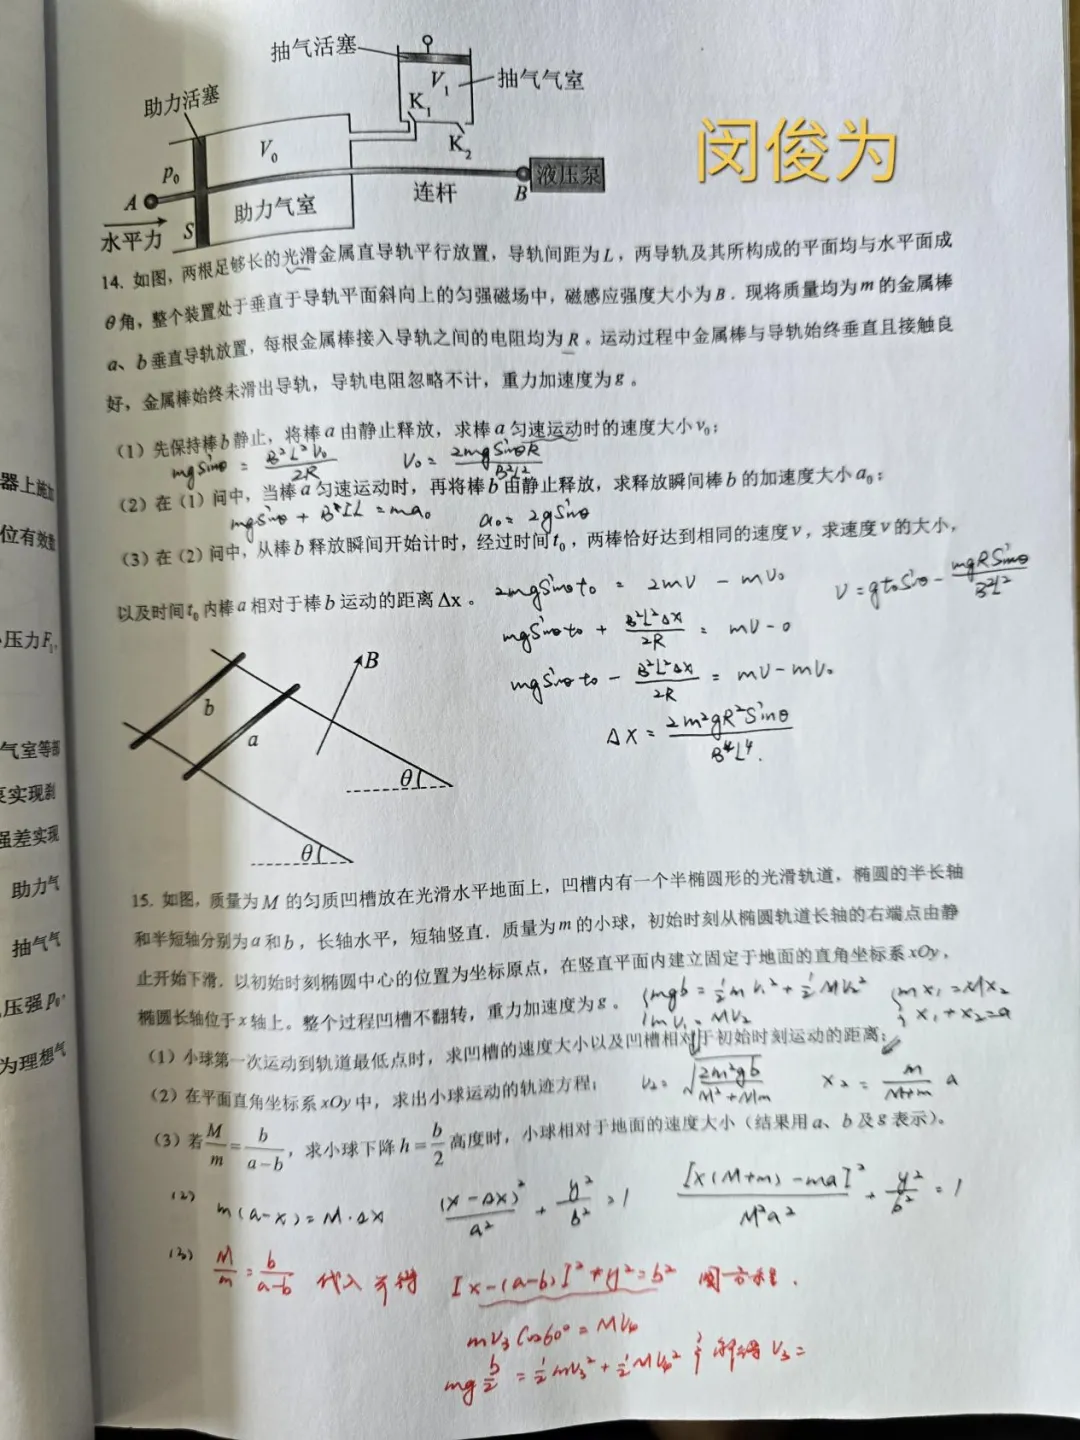 抽气活塞
V₁
抽气气室
助力活塞
K₁
V₀
K₂
闵俊为
p₀
液压泵
A
助力气室
连杆
B
水平力
S
14. 如图，两根足够长的光滑金属直导轨平行放置，导轨间距为L，两导轨及其所构成的平面均与水平面成
θ角，整个装置处于垂直于导轨平面斜向上的匀强磁场中，磁感应强度大小为B．现将质量均为m的金属棒
a、b垂直导轨放置，每根金属棒接入导轨之间的电阻均为R。运动过程中金属棒与导轨始终垂直且接触良
好，金属棒始终未滑出导轨，导轨电阻忽略不计，重力加速度为g。
（1）先保持棒b静止，将棒a由静止释放，求棒a匀速运动时的速度大小v₀；
mgsinθ = B²L²V₀/2R V₀ = 2mgsinθR/B²L²
（2）在（1）问中，当棒a匀速运动时，再将棒b由静止释放，求释放瞬间棒b的加速度大小a₀；
a₀ = 2gsinθ
（3）在（2）问中，从棒b释放瞬间开始计时，经过时间t₀，两棒恰好达到相同的速度v，求速度v的大小，
以及时间t₀内棒a相对于棒b运动的距离Δx。
2mgsinθt₀ = 2mV - mV₀ V = gt₀sinθ - mgRsinθ/B²L²
mgsinθt₀ + B²L²Δx/2R = mV - 0
mgsinθt₀ - B²L²Δx/2R = mV - mV₀
Δx = 2m²gR²sinθ/B⁴L⁴.
B
b
a
θ
θ
器上施加
位有效数
压力F₁,
气室等部
泵实现刹
强差实现
助力气
抽气气
压强p₀,
为理想气
15. 如图，质量为M的匀质凹槽放在光滑水平地面上，凹槽内有一个半椭圆形的光滑轨道，椭圆的半长轴
和半短轴分别为a和b，长轴水平，短轴竖直．质量为m的小球，初始时刻从椭圆轨道长轴的右端点由静
止开始下滑．以初始时刻椭圆中心的位置为坐标原点，在竖直平面内建立固定于地面的直角坐标系xOy，
椭圆长轴位于x轴上。整个过程凹槽不翻转，重力加速度为g。
mgb = ½mV₁² + ½MV₂²
mV₁ = MV₂
mx₁ = Mx₂
x₁ + x₂ = a
（1）小球第一次运动到轨道最低点时，求凹槽的速度大小以及凹槽相对于初始时刻运动的距离；
（2）在平面直角坐标系xOy中，求出小球运动的轨迹方程；
V₂ = √(2m²gb/M²+Mm) x₂ = m/M+m a
（3）若M/m = b/a-b，求小球下降h = b/2高度时，小球相对于地面的速度大小（结果用a、b及g表示）。
(2) m(a-x) = M·Δx (x-Δx)²/a² + y²/b² = 1 [x(M+m)-ma]²/M²a² + y²/b² = 1
(3) M/m = b/a-b 代入可得 [x-(a-b)]² + y² = b² 圆方程.
mV₃cos60° = MV₄
mg b/2 = ½mV₃² + ½MV₄² 解得 V₃ =